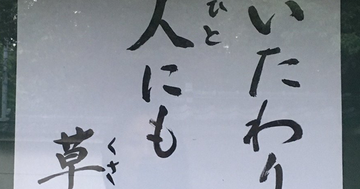 いたわり
人にも
ひと
草
くさ